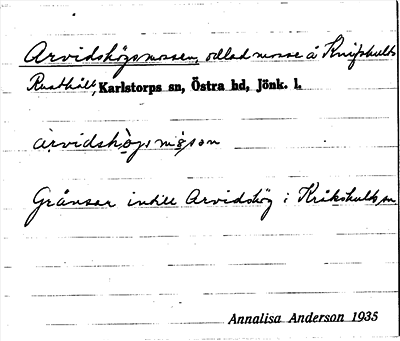 Arvidshögsmossen, odlad mosse å Knifshults
Rusthåll, Karlstorps sn, Östra hd, Jönk. l.
arvidshögsmåsən
Gränsar intill Arvidshög i Kråkshults sn
Annalisa Anderson 1935